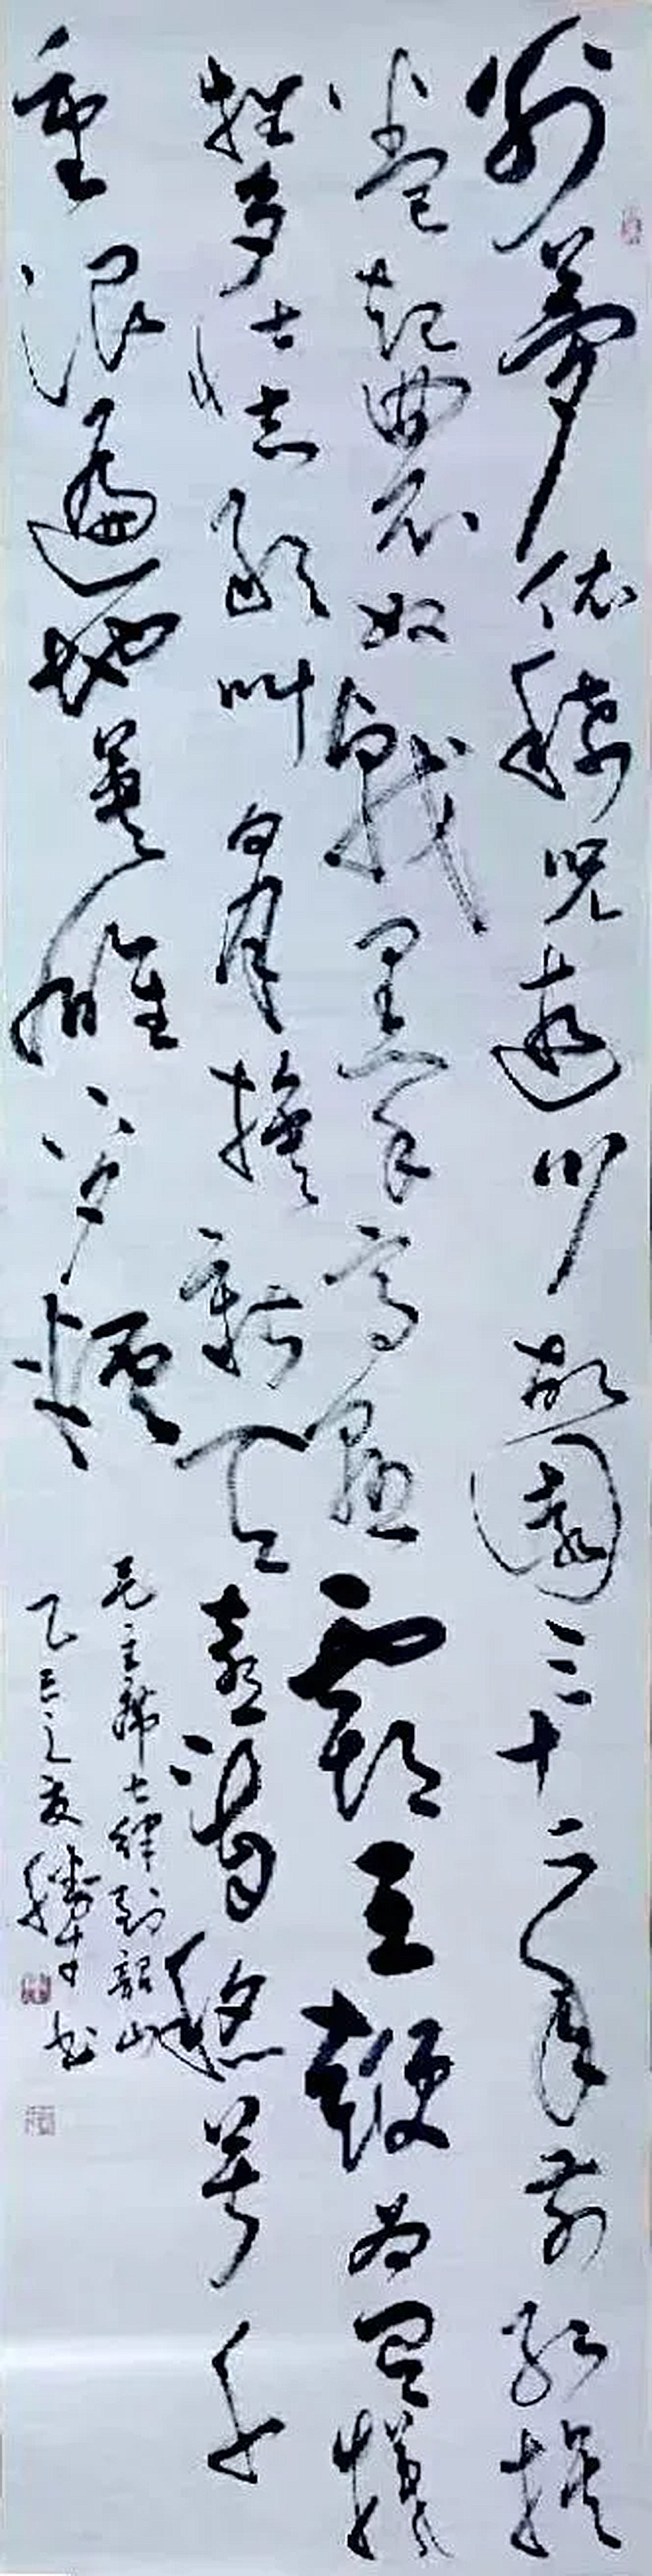 別夢依稀咒逝川故園三十二年前紅旗
卷起農奴戟黑手高懸霸主鞭為有犧
牲多壯志敢叫日月換新天喜看稻菽千
重浪遍地英雄下夕煙
毛主席七律到韶山
乙巳之夏书